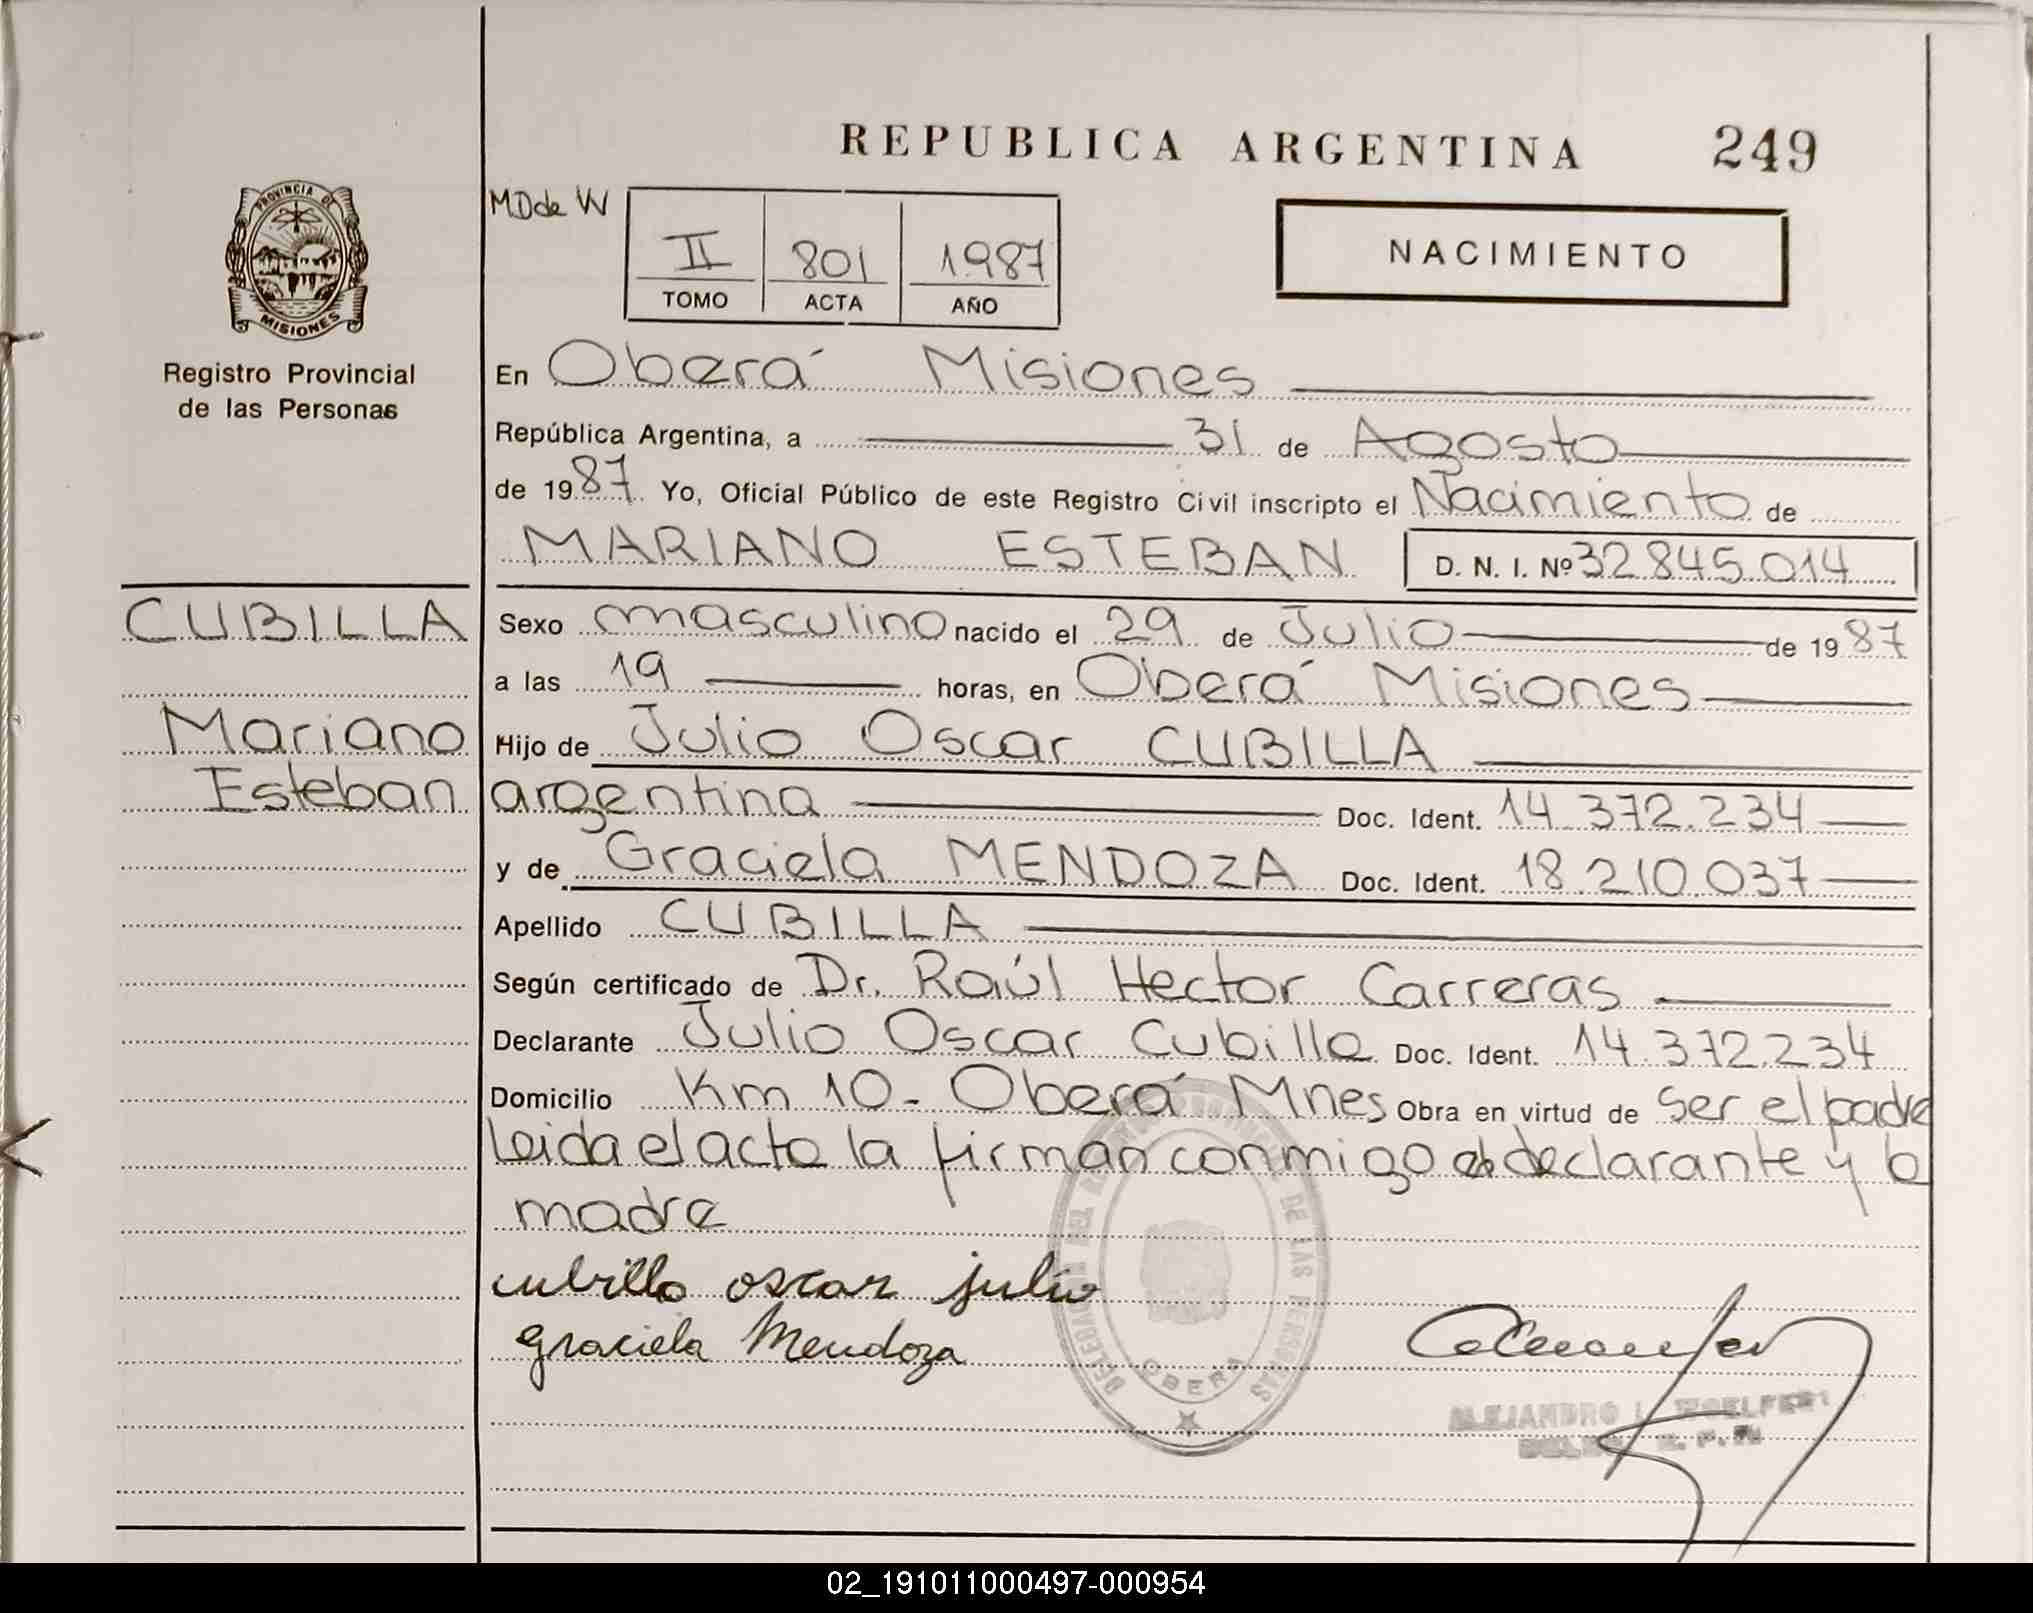 REPUBLICA ARGENTINA 249
PROVINCIA DE
MISIONES
Registro Provincial
de las Personas
MD de W
II 801 1987
TOMO ACTA AÑO
NACIMIENTO
En Oberá Misiones
República Argentina, a 31 de Agosto
de 1987. Yo, Oficial Público de este Registro Civil inscripto el Nacimiento de
MARIANO ESTEBAN D. N. I. Nº 32.845.014
CUBILLA
Mariano
Esteban
Sexo masculino nacido el 29 de Julio de 1987
a las 19 horas, en Oberá Misiones
Hijo de Julio Oscar CUBILLA
argentina Doc. Ident. 14.372.234
y de Graciela MENDOZA Doc. Ident. 18.210.037
Apellido CUBILLA
Según certificado de Dr. Raúl Hector Carreras
Declarante Julio Oscar Cubilla Doc. Ident. 14.372.234
Domicilio Km 10 - Oberá Mnes Obra en virtud de ser el padre
Leida el acta la firman conmigo el declarante y la
madre
cubilla oscar julio
Graciela Mendoza
DELEGACION DEL REGISTRO PROVINCIAL DE LAS PERSONAS
OBERA
ALEJANDRO
02_191011000497-000954